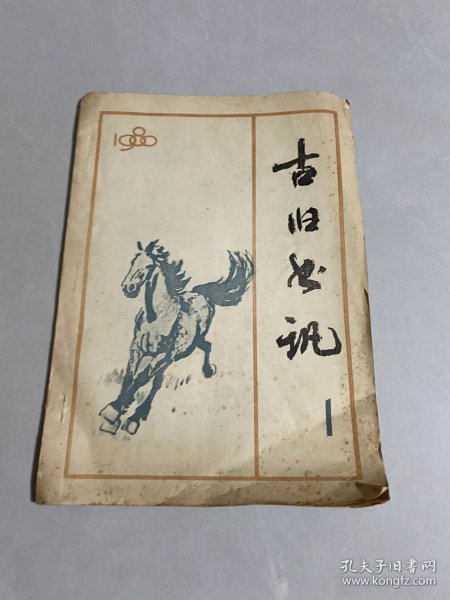 1980
古旧书讯
1
孔夫子旧书网
www.kongfz.com